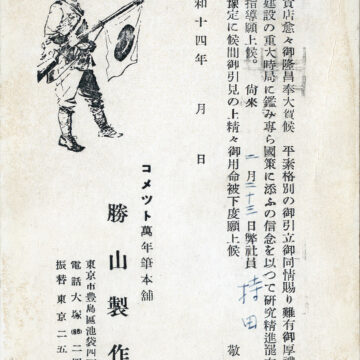 貴店愈々御隆昌奉大賀候 平素格別の御引立御同情賜り難有御厚禮
建設の重大時局に鑑み專ら國策に添ふの信念を以つて研究精進罷
指導願上候。尙來 二月二十三日弊社員 持田 敬
豫定に候間御引見の上精々御用命被下度願上候
和十四年 月 日
コメツト萬年筆本舖
勝山製作
東京市豊島區池袋四
電話大塚(86)二
振替東京二五